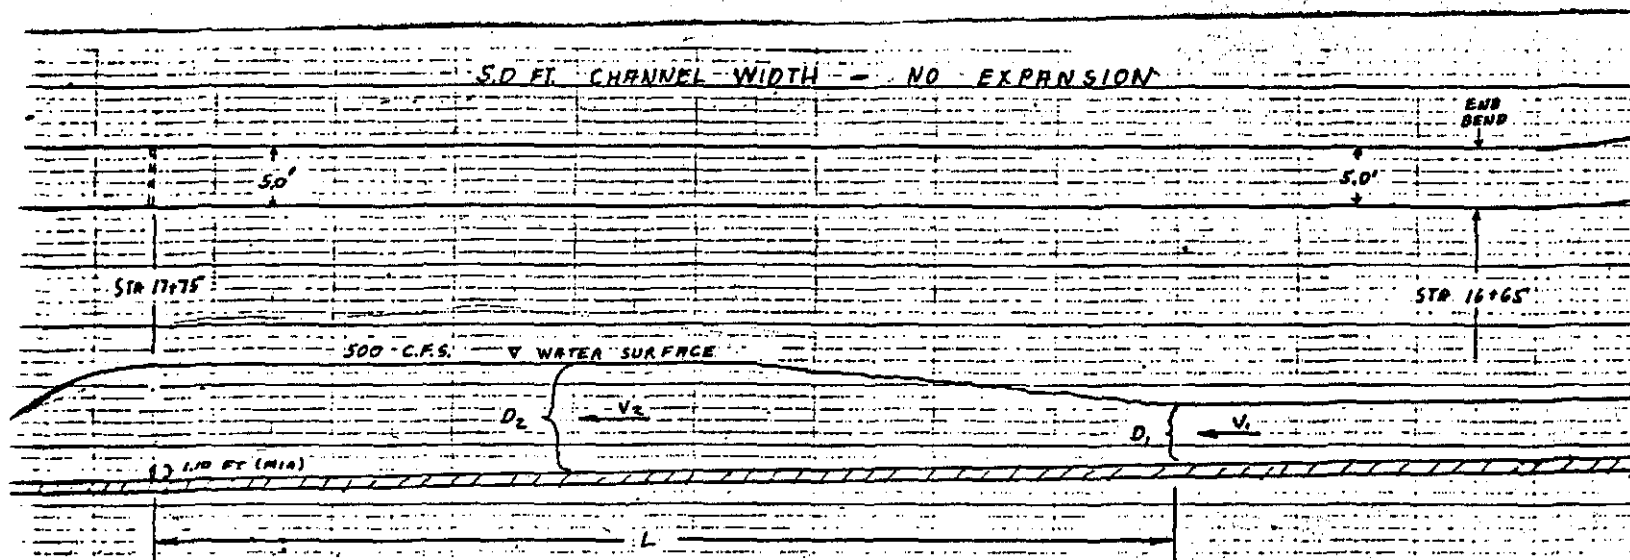 5.0 FT. CHANNEL WIDTH - NO EXPANSION
END
BEND
5.0'
5.0'
STA 17+75
STA 16+65
500 C.F.S. ∇ WATER SURFACE
D2
V2
D1
V1
1.10 FT (MIN)
L